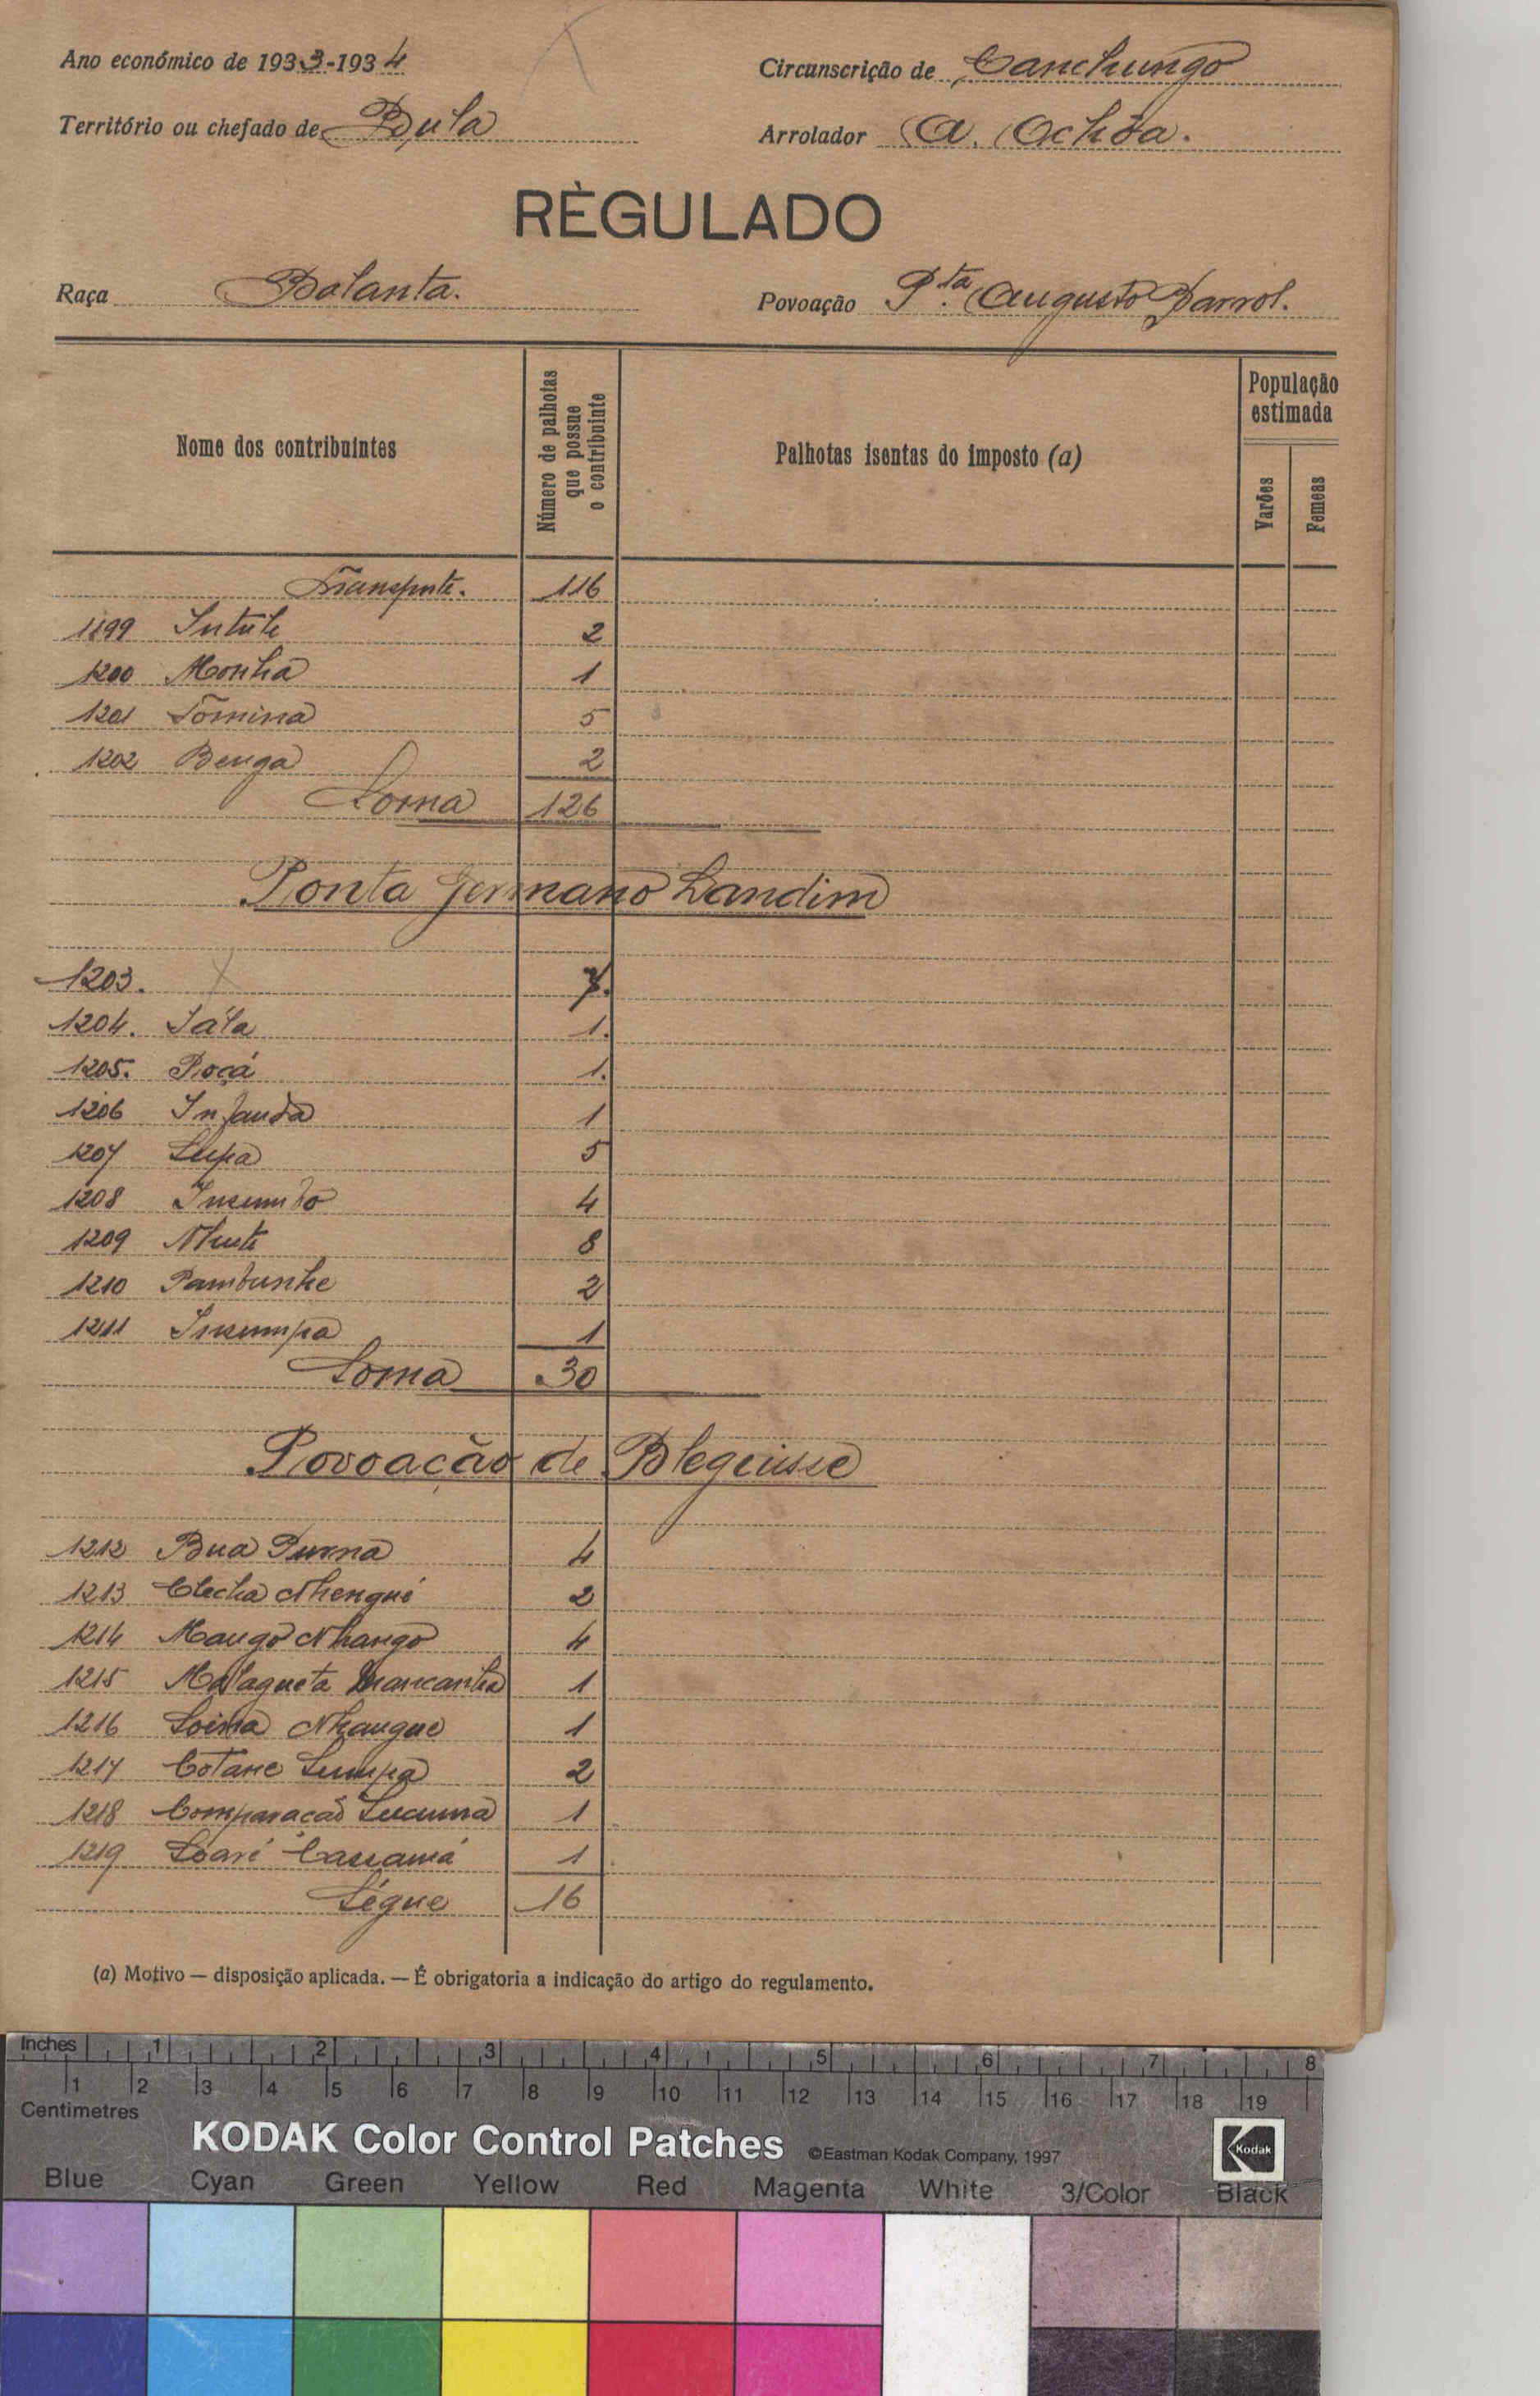 Ano económico de 1933-1934
Circunscrição de Canchungo
Território ou chefado de Bula
Arrolador A. Ochôa.
RÈGULADO
Raça Balanta.
Povoação P.ta Augusto Barros.
Nome dos contribuintes
Número de palhotas que possue o contribuinte
Palhotas isentas do imposto (a)
População estimada
Varões
Femeas
Transporte. 116
1199 Intute 2
1200 Monha 1
1201 Tomina 5
1202 Benga 2
Soma 126
Ponta Germano Landim
1203.
1204. Sála 1.
1205. Poçá 1.
1206 Infanda 1
1207 Supa 5
1208 Insumbo 4
1209 Nhute 8
1210 Pambunhe 2
1211 Insumpa 1
Soma 30
Povoação de
1212 Bua Purna 4
1213 Clecha Nhengué 2
1214 Mango Nhango 4
1215 Malagueta Mancanha 1
1216 Nhangue 1
1217 Cotane Sumpa 2
1218 Comparacão 1
1219 Cassamá 1
Ségue 16
(a) Motivo — disposição aplicada. — É obrigatoria a indicação do artigo do regulamento.
Inches 1 2 3 4 5 6 7 8
1 2 3 4 5 6 7 8 9 10 11 12 13 14 15 16 17 18 19
Centimetres
KODAK Color Control Patches ©Eastman Kodak Company, 1997
Kodak
Blue Cyan Green Yellow Red Magenta White 3/Color Black